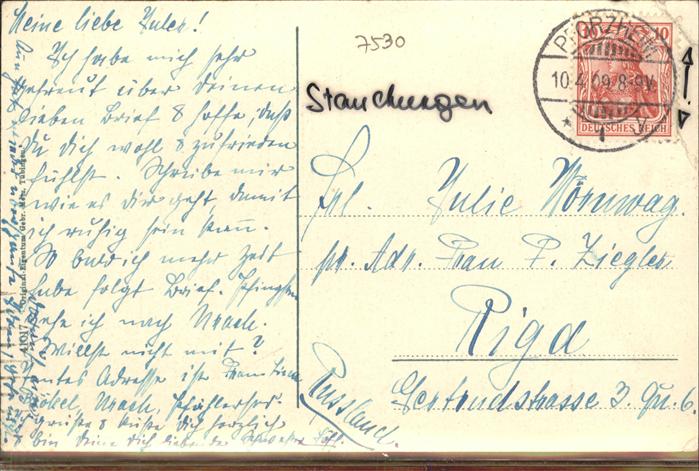 Meine liebe Jules!
Ich habe mich sehr
gefreut über deinen
lieben Brief & hoffe, daß
du dich wohl & zufrieden
fühlst. Schreibe mir
wie es dir geht damit
ich ruhig sein kann.
So bald ich mehr Zeit
habe folgt Brief. Pfingsten
gehe ich nach Urach.
Willst nicht mit?
Adresse ist Frau
Urach,
grüße & küße dich herzlich
bin deine dich liebende
7530
Stauchungen
PFORZHEIM
10.4.09.8-9V.
* 1
10 10
DEUTSCHES REICH
Frl. Julie Nörnwag.
pr. Adr. Frau P. Ziegler
Riga
Gertrudstrasse 3. Qu. 6
Russland.
41017 Original-Eigentum Gebr. Metz, Tübingen